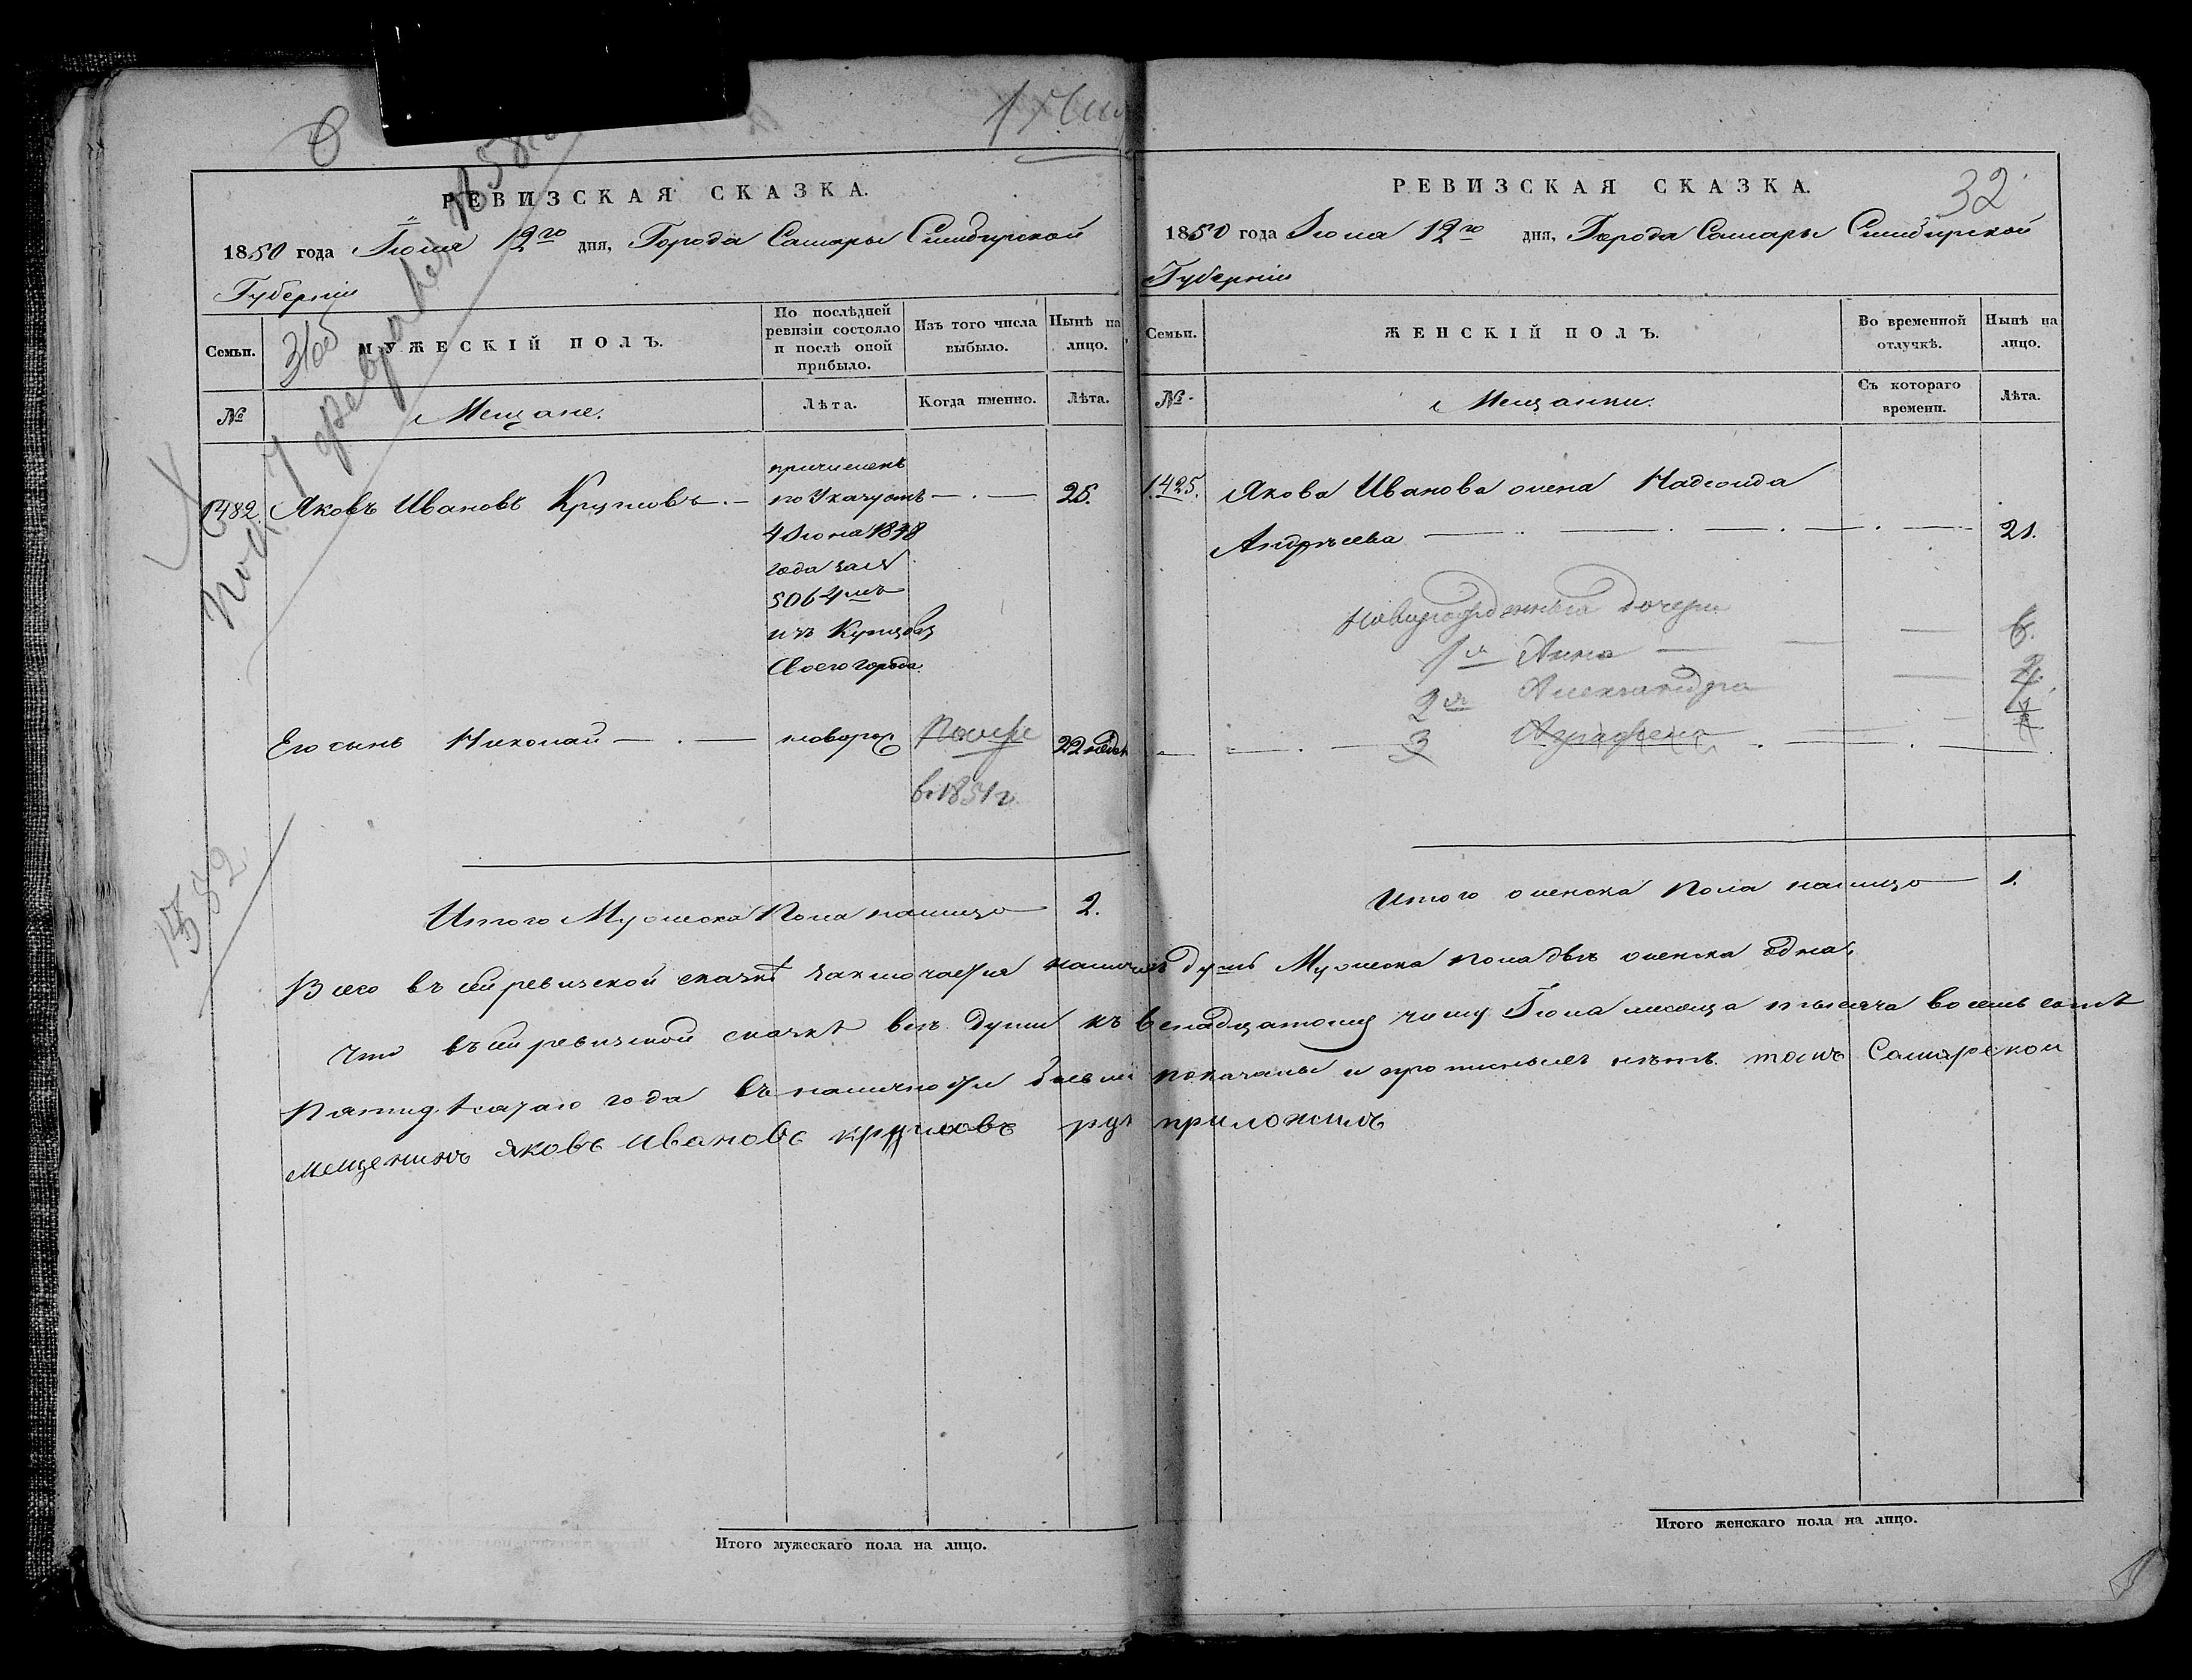 РЕВИЗСКАЯ СКАЗКА.
1850 года Іюня 12го дня, Города Самары Симбирской
Губерніи
Семьи.
МУЖЕСКІЙ ПОЛЪ.
По послѣдней
ревизіи состояло
и послѣ оной
прибыло.
Изъ того числа
выбыло.
Нынѣ на
лицо.
№
Мещане.
Лѣта.
Когда именно.
Лѣта.
1482. Яковъ Ивановъ
причисленъ
по Указу
4 Іюня
года за №
5064мъ
изъ Купцовъ
сего города.
25.
Его сынъ Николай
новорож
в 1851 г.
22 недел
1582
Итого Мужеска Пола налицо 2.
Всего въ сей ревизской сказкѣ заключается
что въ сей ревизской сказкѣ всѣ души къ
года въ наличности были
мещенинъ яковъ ивановъ
Итого мужескаго пола на лицо.
РЕВИЗСКАЯ СКАЗКА.
32
1850 года Іюня 12го дня, Города Самары Симбирской
Губерніи
Семьи.
ЖЕНСКІЙ ПОЛЪ.
Во временной
отлучкѣ.
Нынѣ на
лицо.
№
Мещанки.
Съ котораго
времени.
Лѣта.
1425. Якова Иванова жена Надежда
Андрѣева 21.
дочери
1я Анна 6.
2я Александра
3 Аграфена
Итого женска Пола налицо 1.
душъ Мужеска пола двѣ женска одна,
числу Іюня месяца тысяча восемь сотъ
показаны и прописныхъ нѣтъ. Самарской
приложилъ
Итого женскаго пола на лицо.